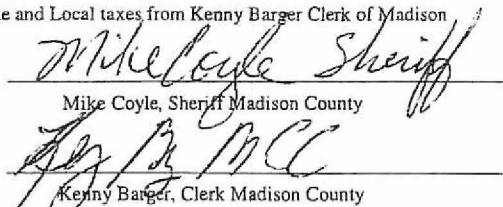 e and Local taxes from Kenny Barger Clerk of Madison
Mike Coyle Sheriff
Mike Coyle, Sheriff Madison County
MCC
Kenny Barger, Clerk Madison County